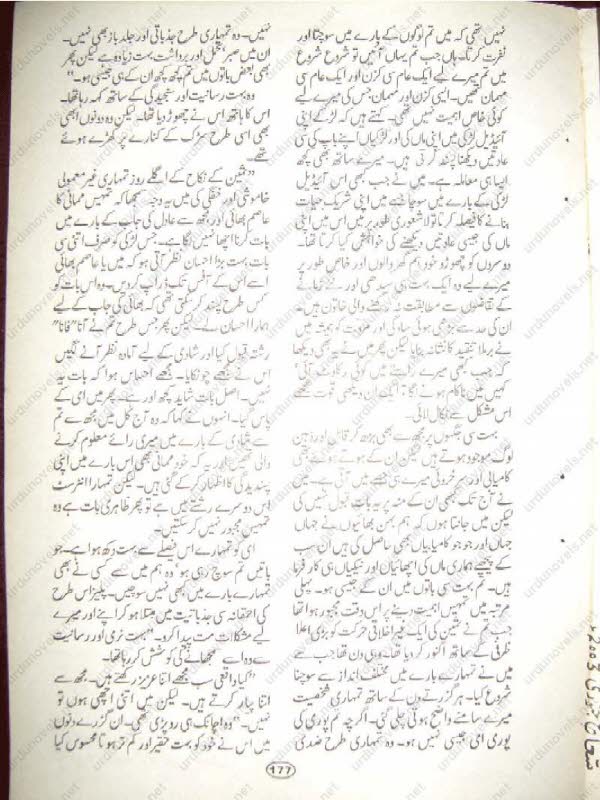 نہیں تھی کہ میں تم لوگوں کے بارے میں سوچتا اور
نفرت کرتا، ہاں جب تم یہاں آئیں تو شروع شروع
میں تم میرے لیے ایک عام سی کزن اور ایک عام سی
مہمان تھیں۔ ایسی کزن اور مہمان جس کی میرے لیے
کوئی خاص اہمیت نہیں تھی۔ کہتے ہیں کہ لڑکے اپنی
آئیڈیل لڑکی میں اپنی ماں کی اور لڑکیاں اپنے باپ کی سی
عادتیں دیکھنا پسند کرتی ہیں۔ میرے ساتھ بھی کچھ
ایسا ہی معاملہ ہے۔ میں نے جب بھی اس آئیڈیل
لڑکی کے بارے میں سوچا جسے میں اپنی شریک حیات
بنانے کا فیصلہ کرتا تو لاشعوری طور پر میں اس میں اپنی
ماں کی جیسی عادتیں دیکھنے کی خواہش کیا کرتا تھا۔
دوسروں کو چھوڑو خود ہم گھر والوں اور خاص طور پر
میرے لیے وہ ایک بہت ہی سیدھی اور نئے زمانے
کے تقاضوں سے مطابقت نہ رکھنے والی خاتون ہیں۔
ان کی حد سے بڑھی ہوئی سادگی اور مروت کو ہمیشہ میں
نے برملا تنقید کا نشانہ بنایا لیکن پھر میں نے یہ بھی دیکھا
کہ جب کبھی میرے راستے میں کوئی رکاوٹ آئی،
کہیں میں ناکام ہونے لگا، ایک ان دیکھی قوت مجھے
اس مشکل سے نکال لائی۔
بہت سی جگہوں پر مجھ سے بھی بڑھ کر قابل اور ذہین
لوگ موجود ہوتے ہیں لیکن ان کے ہوتے ہوئے بھی
کامیابی اور سرخروئی میرے ہی حصے میں آتی ہے۔ میں
نے آج تک کبھی ان کے منہ پر یہ بات قبول نہیں کی
لیکن میں جانتا ہوں کہ ہم بہن بھائیوں نے جہاں
جہاں اور جو جو کامیابیاں بھی حاصل کی ہیں ان سب
کے پیچھے ہماری ماں کی اچھائیاں اور نیکیاں ہی کار فرما
ہیں۔ تم بہت سی باتوں میں ان کے جیسی ہو۔ پہلی
مرتبہ میں تمہیں اہمیت دینے پر اس وقت مجبور ہوا تھا
جب تم نے ثمین کی ایک غیر اخلاقی حرکت کو بڑی اعلا
ظرفی کے ساتھ اگنور کر دیا تھا۔ وہی دن تھا جب سے
میں نے تمہارے بارے میں مختلف انداز سے سوچنا
شروع کیا۔ ہر گزرتے دن کے ساتھ تمہاری شخصیت
میرے سامنے واضح ہوتی چلی گئی۔ اگرچہ تم پوری کی
پوری امی جیسی نہیں ہو۔ وہ تمہاری طرح ضدی
نہیں۔ وہ تمہاری طرح جذباتی اور جلد باز بھی نہیں۔
ان میں صبر، تحمل اور برداشت بہت زیادہ ہے لیکن پھر
بھی بعض باتوں میں تم کچھ کچھ ان کے ہی جیسی ہو۔"
وہ بہت رسانیت اور سنجیدگی کے ساتھ کہہ رہا تھا۔
اس کا ہاتھ اس نے چھوڑ دیا تھا۔ لیکن وہ دونوں ابھی
بھی اسی طرح سڑک کے کنارے پر کھڑے ہوئے
تھے۔
"ثمین کے نکاح کے اگلے روز تمہاری غیر معمولی
خاموشی اور خفگی کی میں یہ وجہ سمجھا کہ تمہیں ممانی کا
عاصم بھائی اور مجھ سے عادل کی جاب کے بارے میں
بات کرنا اچھا نہیں لگا ہے۔ جس لڑکی کو صرف اتنی سی
بات بہت بڑا احسان نظر آتی ہو کہ میں یا عاصم بھائی
اسے اس کے آفس تک ڈراپ کر دیں۔ وہ اس بات کو
کس طرح پسند کر سکتی تھی کہ بھائی کی جاب کے لیے
ہمارا احسان لے۔ لیکن پھر جس طرح تم نے آنا "فانا"
رشتہ قبول کیا اور شادی کے لیے آمادہ نظر آنے لگیں
اس نے مجھے چونکایا۔ مجھے احساس ہوا کہ بات یہ
نہیں۔ اصل بات شاید کچھ اور ہے۔ پھر میں امی کے
پاس گیا۔ انہوں نے کہا کہ وہ آج کل میں مجھ سے تم
سے شادی کے بارے میں میری رائے معلوم کرنے
والی تھیں اور یہ کہ خود ممانی بھی اس بارے میں اپنی
پسندیدگی کا اظہار کر گئی ہیں۔ لیکن تمہارا انٹرسٹ
اس دوسرے رشتے میں ہے تو پھر ظاہری بات ہے وہ
تمہیں مجبور نہیں کر سکتیں۔
امی کو تمہارے اس فیصلے سے بہت دکھ ہوا ہے۔ جو
باتیں تم سوچ رہی ہو، وہ ہم میں سے کسی نے بھی
تمہارے بارے میں کبھی نہیں سوچیں۔ پلیز اس طرح
کی احمقانہ سی جذباتیت میں مبتلا ہو کر اپنے اور میرے
لیے مشکلات مت پیدا کرو۔" بہت نرمی اور رسانیت
سے وہ اسے سمجھانے کی کوشش کر رہا تھا۔
"کیا واقعی سب مجھے اتنا عزیز رکھتے ہیں۔ مجھ سے
اتنا پیار کرتے ہیں۔ لیکن میں اتنی اچھی ہوں تو
نہیں۔" وہ اچانک ہی رو پڑی تھی۔ ان گزرے دنوں
میں اس نے خود کو بہت حقیر اور کم تر ہوتا محسوس کیا
177
شعاع جنوری 2003ء
urdunovels.net